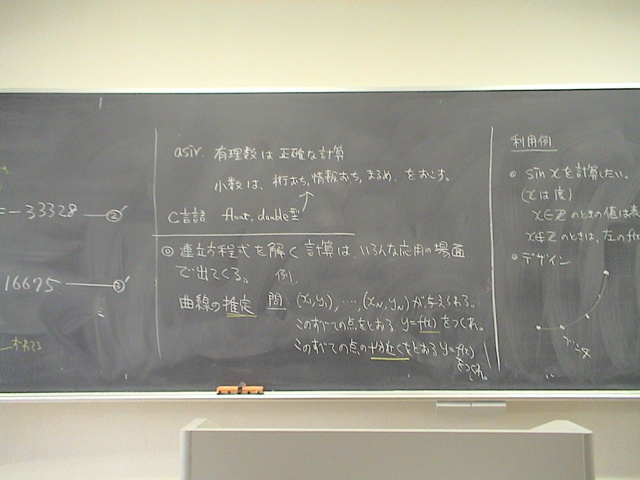 = -33328 ―②'
16675 ―③'
asir. 有理数は正確な計算
小数は、桁おち,情報おち,まるめ、をおこす。
C言語 float, double型
◎ 連立方程式を解く計算は、いろんな応用の場面
で出てくる。 例.
曲線の推定 問 (x₁,y₁), …, (x_N,y_N)が与えられる。
このすべての点をとおる y=f(x) をつくれ。
このすべての点の十分近くをとおる y=f(x)
をつくれ。
利用例
◎ sin x を計算したい。
(xは度)
x∈ℤ のときの値は
x∉ℤ のときは、左のf(x)
◎ デザイン